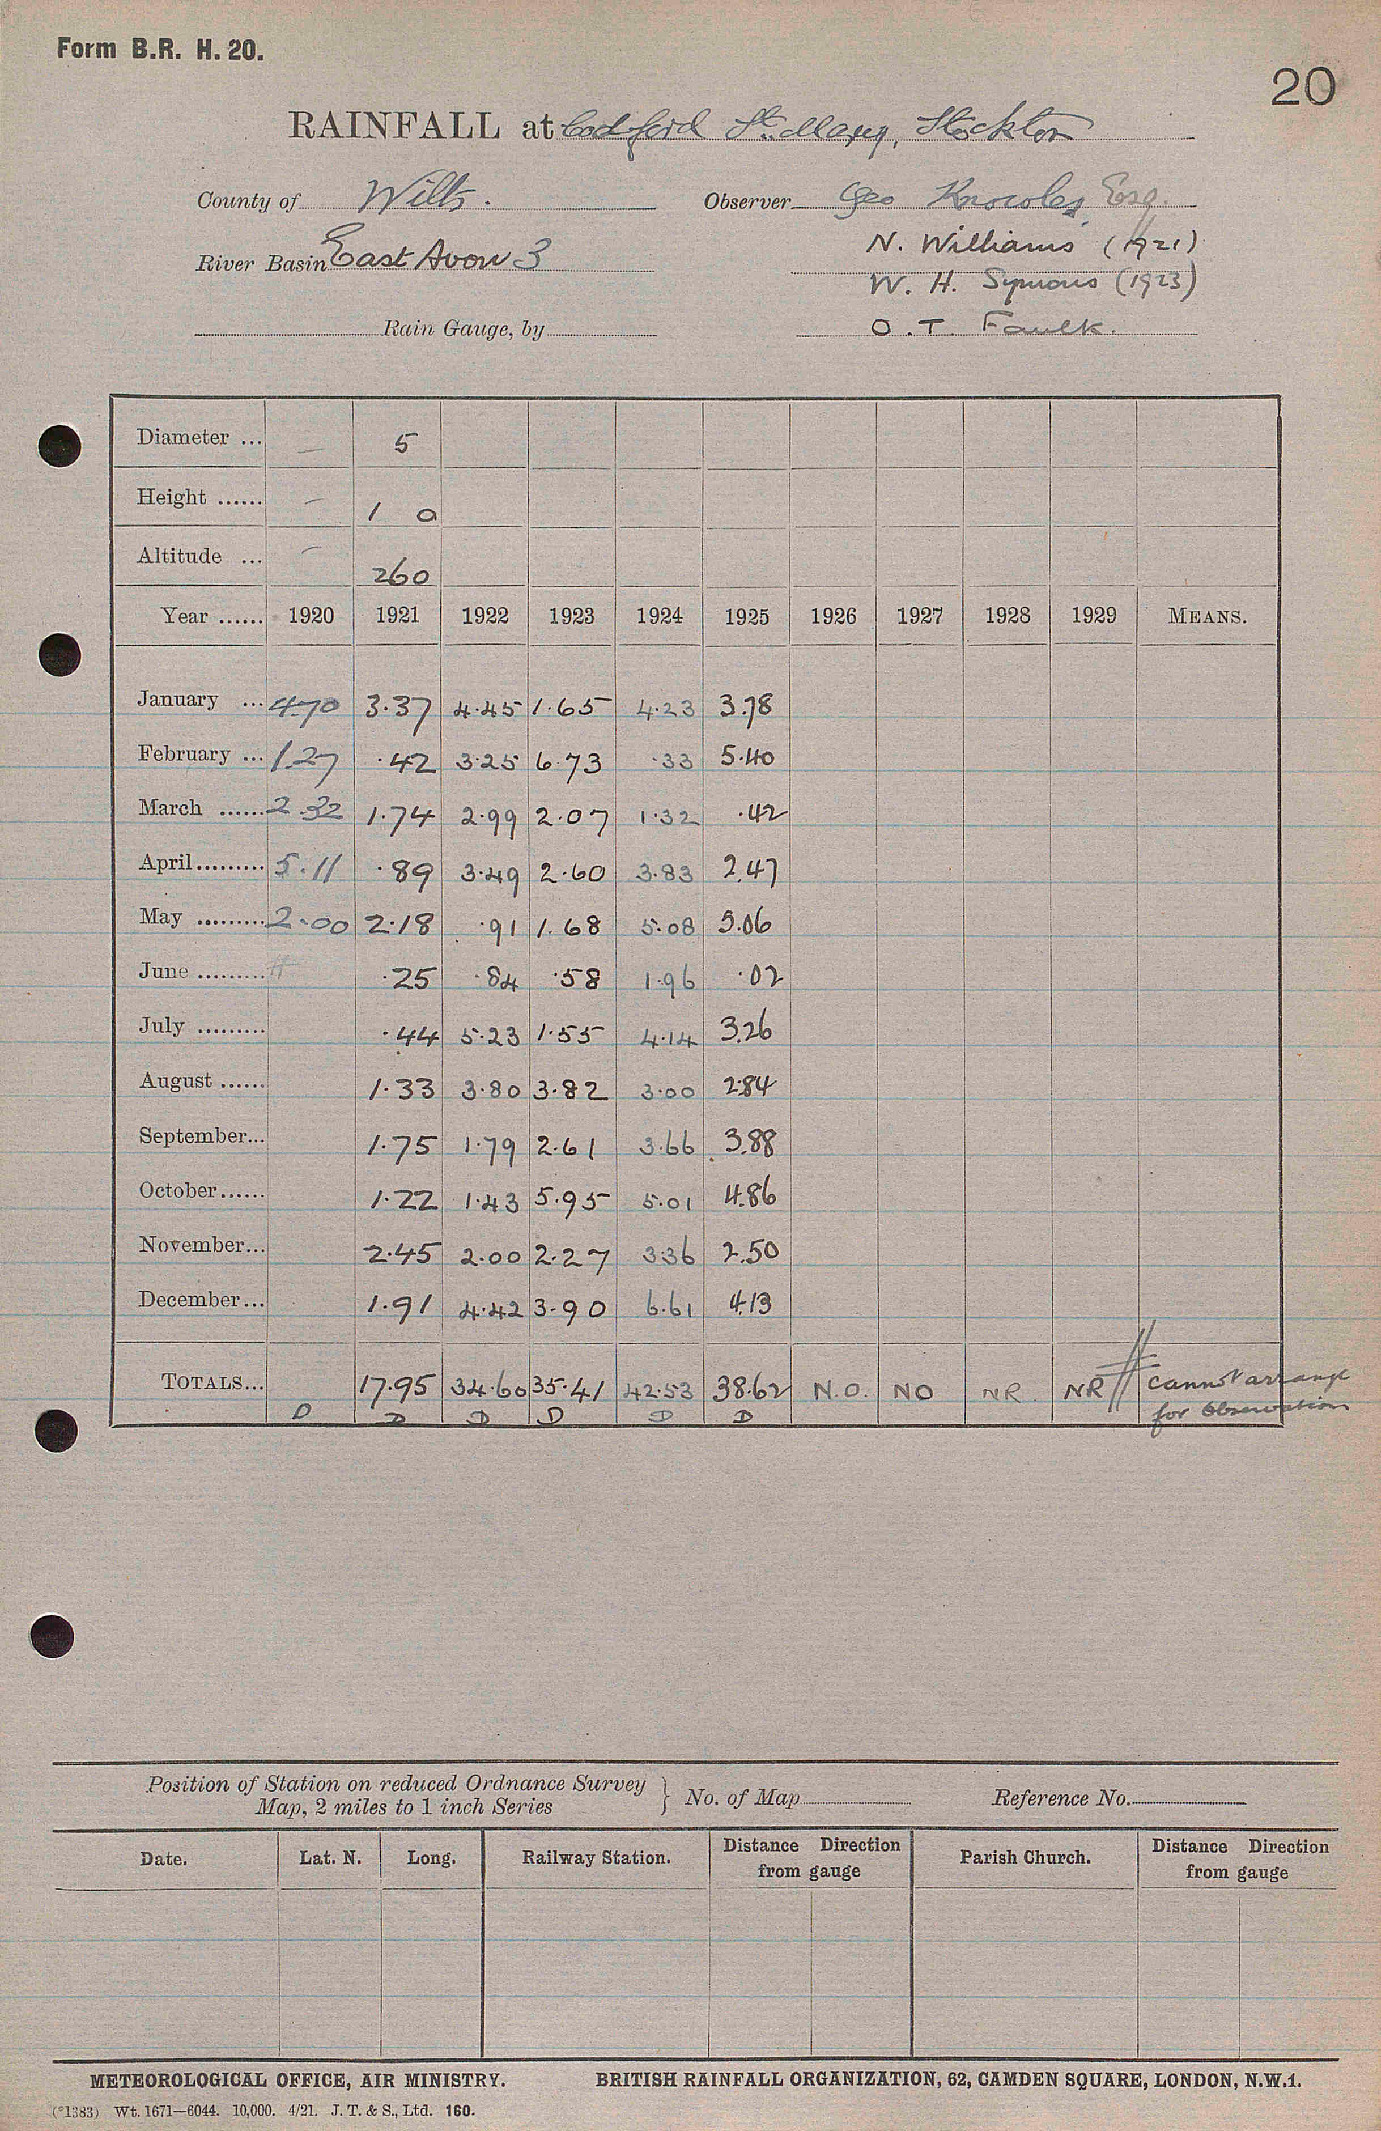 Form B.R. H. 20.
20
RAINFALL at Codford St. Mary, Stockton
County of Wilts. Observer Geo Knowles Esq.
River Basin East Avon 3 N. Williams (1921)
W. H. Symons (1923)
Rain Gauge, by O. T. Faulk.
Diameter ... — 5
Height ...... — 1 0
Altitude ... — 260
Year ...... 1920 1921 1922 1923 1924 1925 1926 1927 1928 1929 MEANS.
January ... 4.70 3.37 4.45 1.65 4.23 3.78
February ... 1.27 .42 3.25 6.73 .33 5.40
March ...... 2.32 1.74 2.99 2.07 1.32 .42
April ......... 5.11 .89 3.49 2.60 3.83 2.47
May ......... 2.00 2.18 .91 1.68 5.08 5.06
June ......... # .25 .84 .58 1.96 .02
July ......... .44 5.23 1.55 4.14 3.26
August ...... 1.33 3.80 3.82 3.00 2.84
September... 1.75 1.79 2.61 3.66 3.88
October...... 1.22 1.43 5.95 5.01 4.86
November... 2.45 2.00 2.27 3.36 2.50
December... 1.91 4.42 3.90 6.61 4.13
TOTALS... 17.95 34.60 35.41 42.53 38.62 N.O. NO NR. NR # cannot arrange
for observation
D D D D D D
Position of Station on reduced Ordnance Survey
Map, 2 miles to 1 inch Series } No. of Map Reference No.
Date. Lat. N. Long. Railway Station. Distance Direction
from gauge Parish Church. Distance Direction
from gauge
METEOROLOGICAL OFFICE, AIR MINISTRY. BRITISH RAINFALL ORGANIZATION, 62, CAMDEN SQUARE, LONDON, N.W.1.
(*1383) Wt. 1671—6044. 10,000. 4/21. J. T. & S., Ltd. 160.